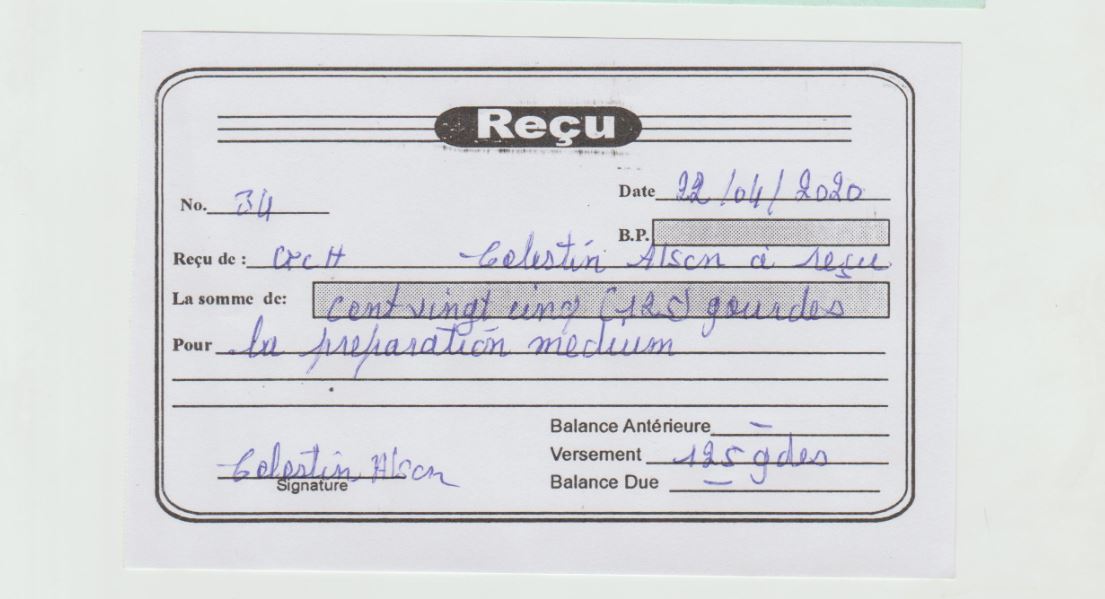 Reçu
No. 34
Date 22/04/2020
B.P.
Reçu de : Celestin Alson à reçu
La somme de: cent vingt cinq (125) gourdes
Pour la preparation medium
Balance Antérieure -
Versement 125 gdes
Balance Due -
Celestin Alson
Signature